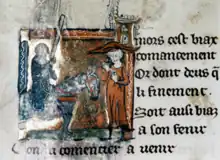 mors cest biax
comancement
Or dont deus q
li finement.
Soit ausi biax
a son fenir
Con la comencier a venir